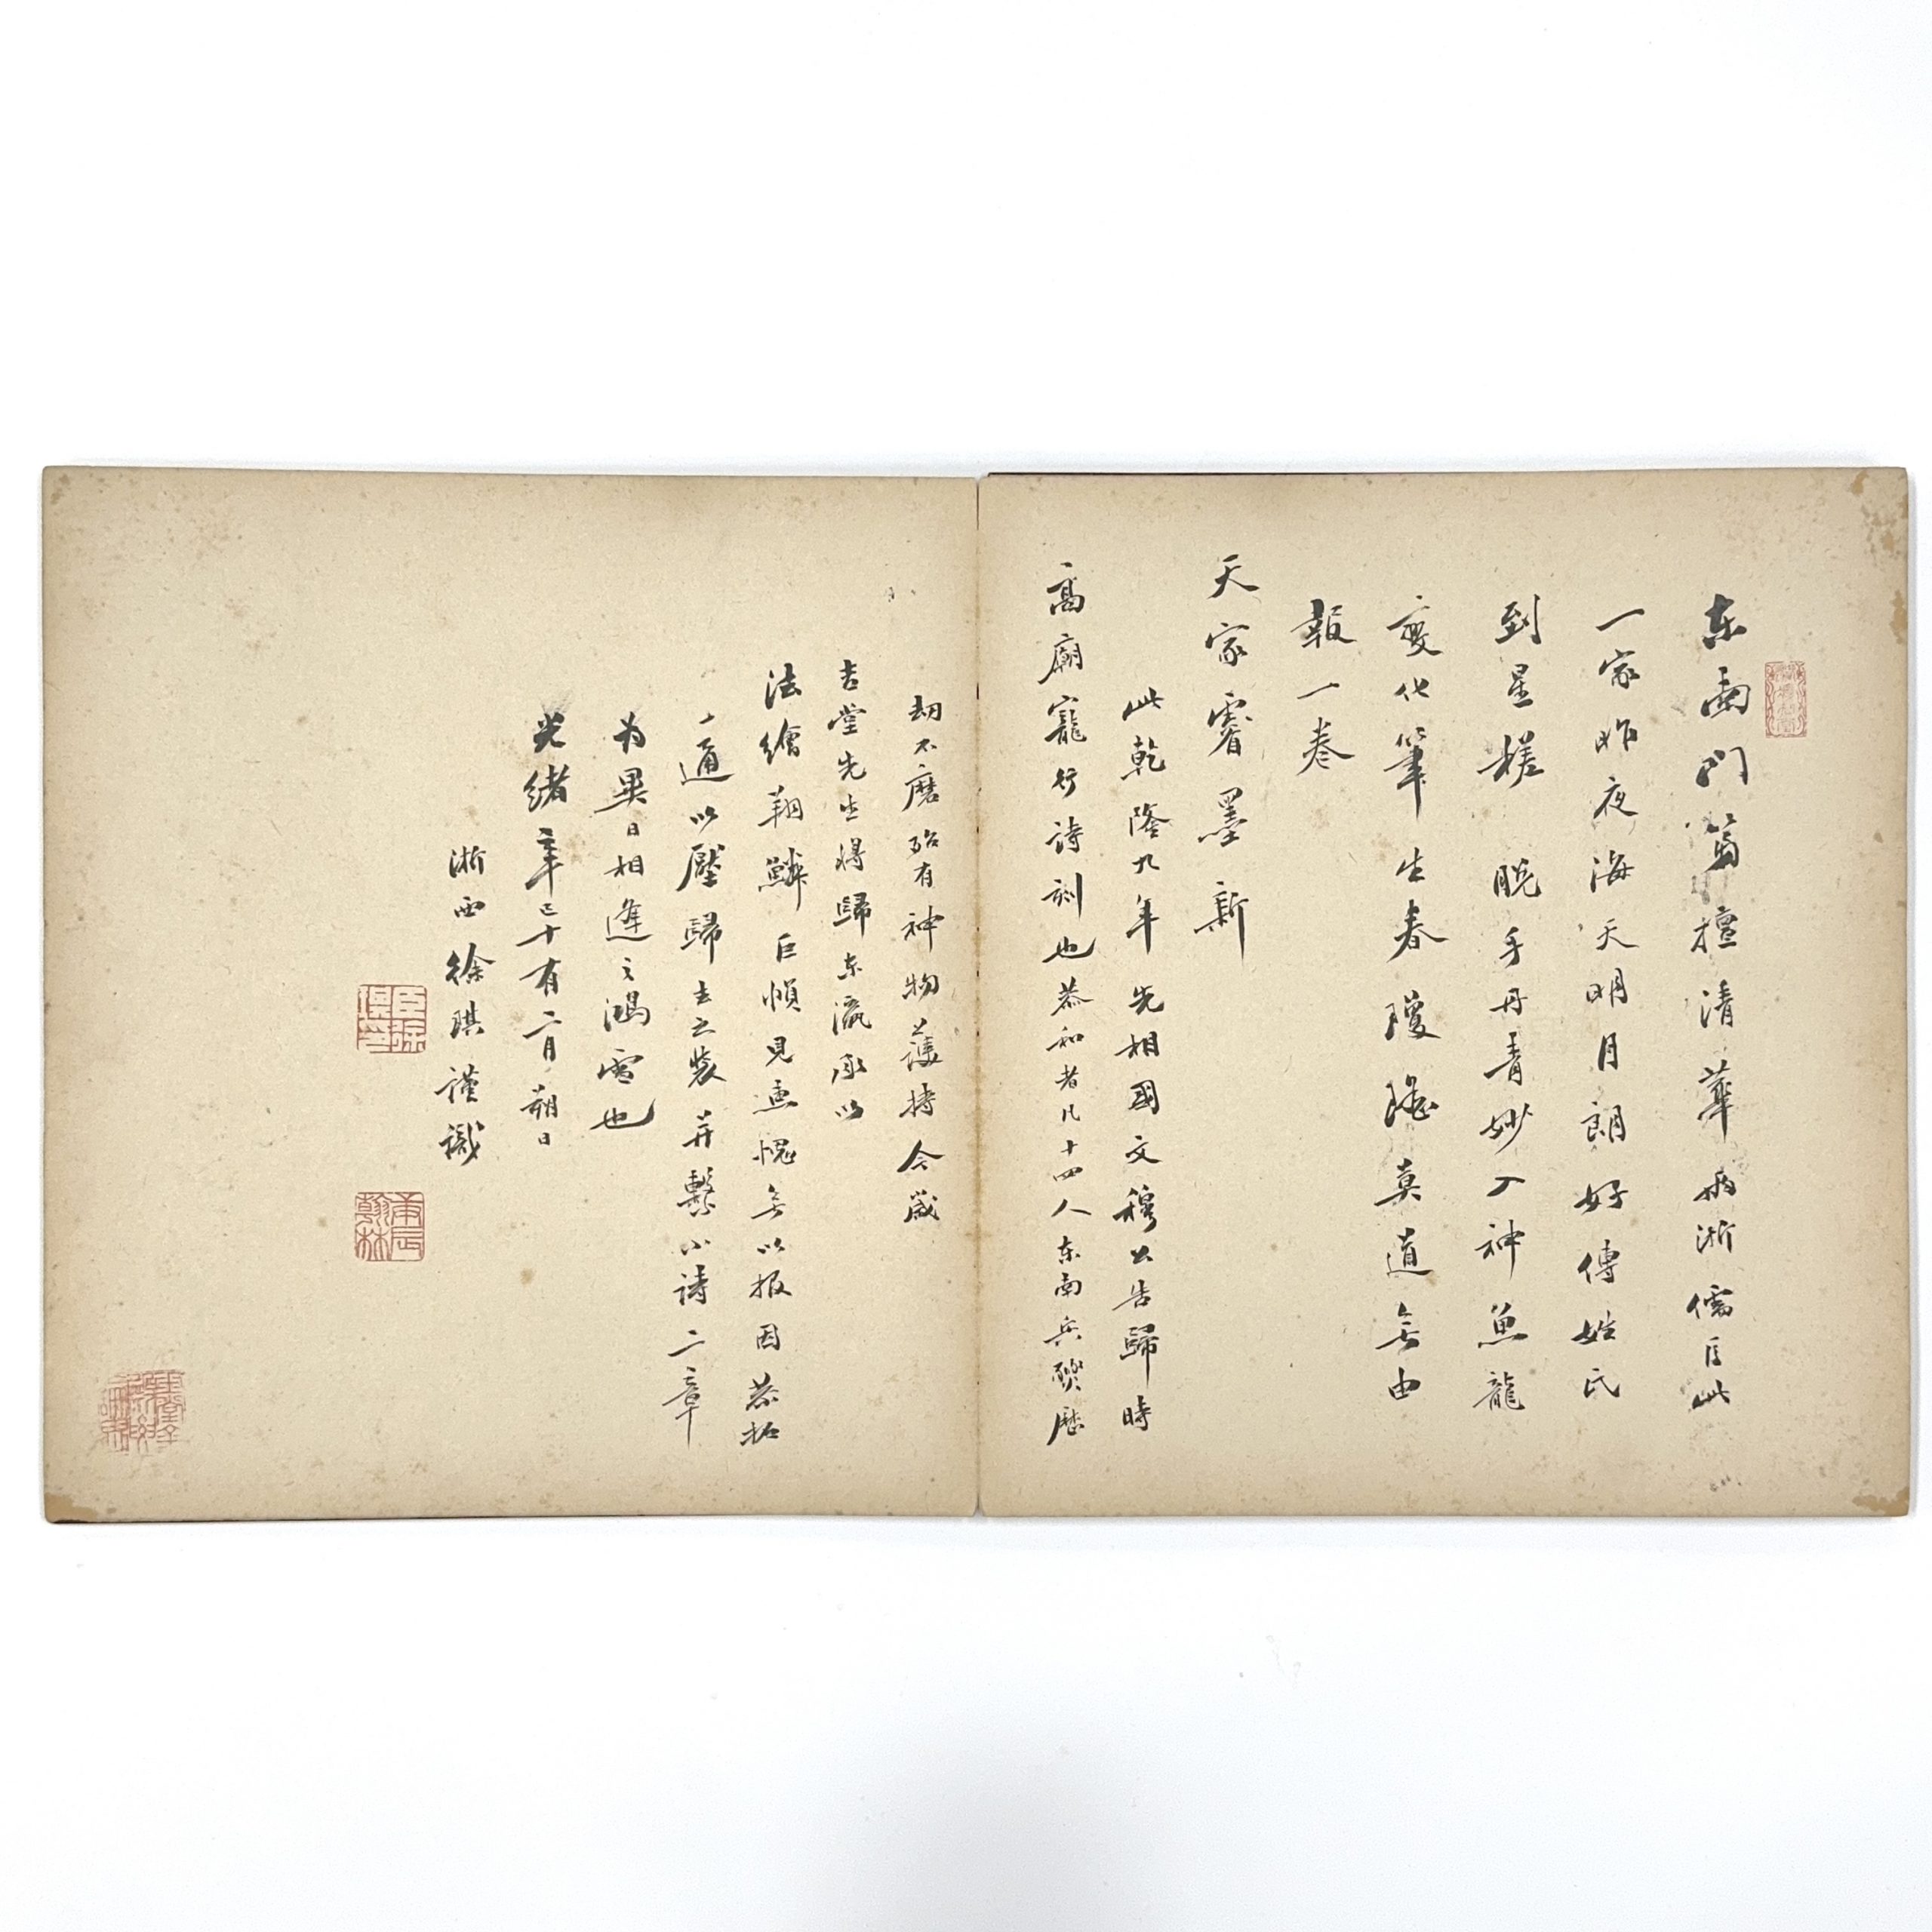 東南門第擅清華両浙儒臣此
一家昨夜海天明月朗好傳姓氏
到星槎 脱手丹青妙入神魚龍
變化筆生春瓊瑤莫道無由
報一卷
天家睿墨新
此乾隆九年先相國文穆公告歸時
高廟寵行詩刻也恭和者凡十四人東南兵燹歷
劫不磨殆有神物護持今歲
吉堂先生將歸東瀛承以
法繪翔鱗巨幀見惠愧無以报因恭拓
一通以壓歸去之裝并繫小詩二章
为異日相逢之鴻雪也
光緒辛巳十有二月朔日
浙西徐琪謹識
臣琪
庚辰翰林